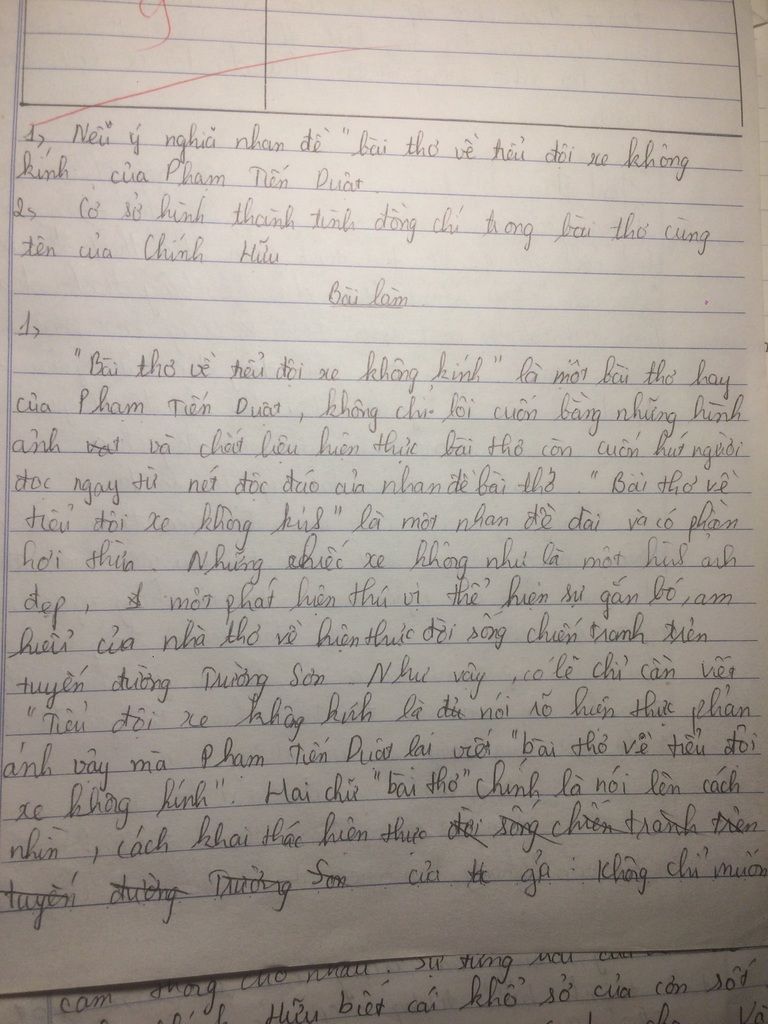 9
1, Nêu ý nghĩa nhan đề "bài thơ về tiểu đội xe không
kính của Phạm Tiến Duật.
2, Cơ sở hình thành tình đồng chí trong bài thơ cùng
tên của Chính Hữu
Bài làm
1,
"Bài thơ về tiểu đội xe không kính" là một bài thơ hay
của Phạm Tiến Duật, không chỉ lôi cuốn bằng những hình
ảnh và chất liệu hiện thực bài thơ còn cuốn hút người
đọc ngay từ nét độc đáo của nhan đề bài thơ. "Bài thơ về
tiểu đội xe không kính" là một nhan đề dài và có phần
hơi thừa. Những chiếc xe không như là một hình ảnh
đẹp, một phát hiện thú vị thể hiện sự gắn bó, am
hiểu của nhà thơ về hiện thực đời sống chiến tranh trên
tuyến đường Trường Sơn. Như vậy, có lẽ chỉ cần viết
"Tiểu đội xe không kính là đủ nói rõ hiện thực phản
ánh vậy mà Phạm Tiến Duật lại viết "bài thơ về tiểu đội
xe không kính". Hai chữ "bài thơ" chính là nói lên cách
nhìn, cách khai thác hiện thực đời sống chiến tranh trên
tuyến đường Trường Sơn của gỉa: Không chỉ muốn
cảm thông cho nhau. Sự từng
Hữu biết cái khổ sở của cơn sốt